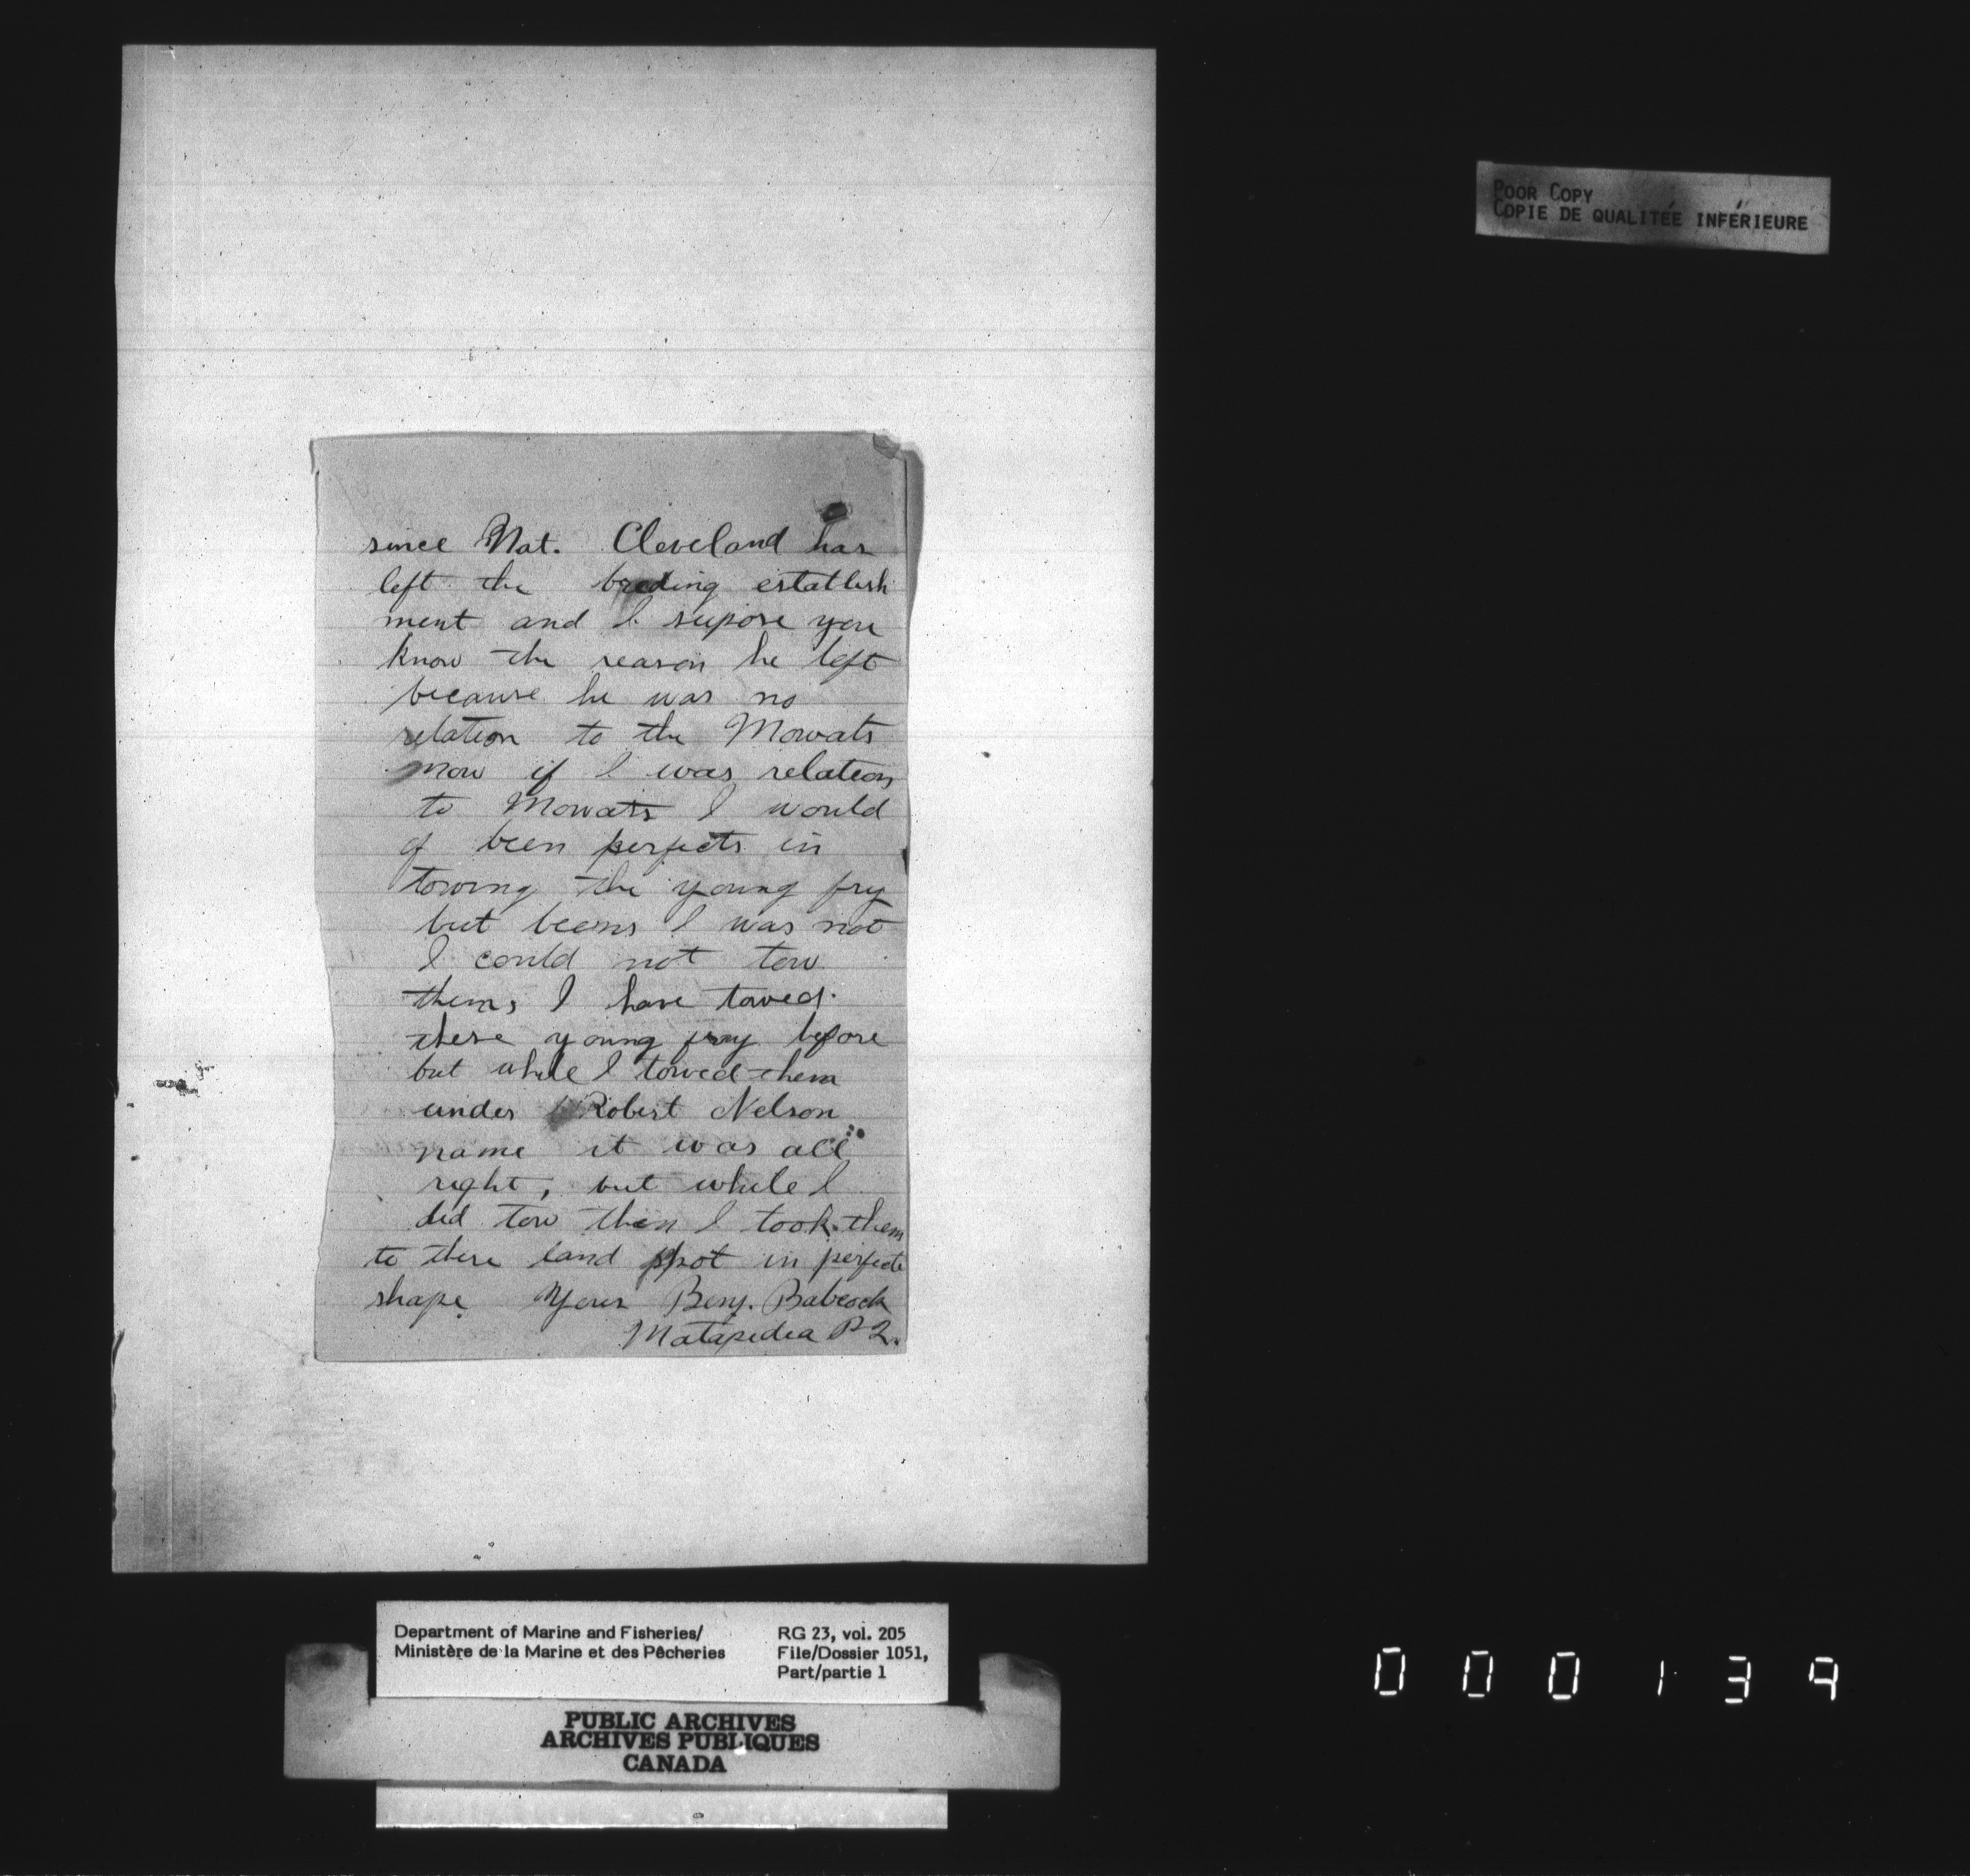 POOR COPY
COPIE DE QUALITÉE INFÉRIEURE
since Nat. Cleveland has
left the breding establish
ment and I supose you
know the reason he left
because he was no
relation to the Mowats
now if I was relation
to Mowats I would
of been perfects in
towing the young fry
but I was not
I could not tow
them, I have towed
these young fray before
but while I towed them
under Robert Nelson
name it was all
right, but while I
did tow them I took them
to there land spot in perfect
shape Yours Benj. Babcock
Matapedia P2.
Department of Marine and Fisheries/
Ministère de la Marine et des Pêcheries
RG 23, vol. 205
File/Dossier 1051,
Part/partie 1
PUBLIC ARCHIVES
ARCHIVES PUBLIQUES
CANADA
000139